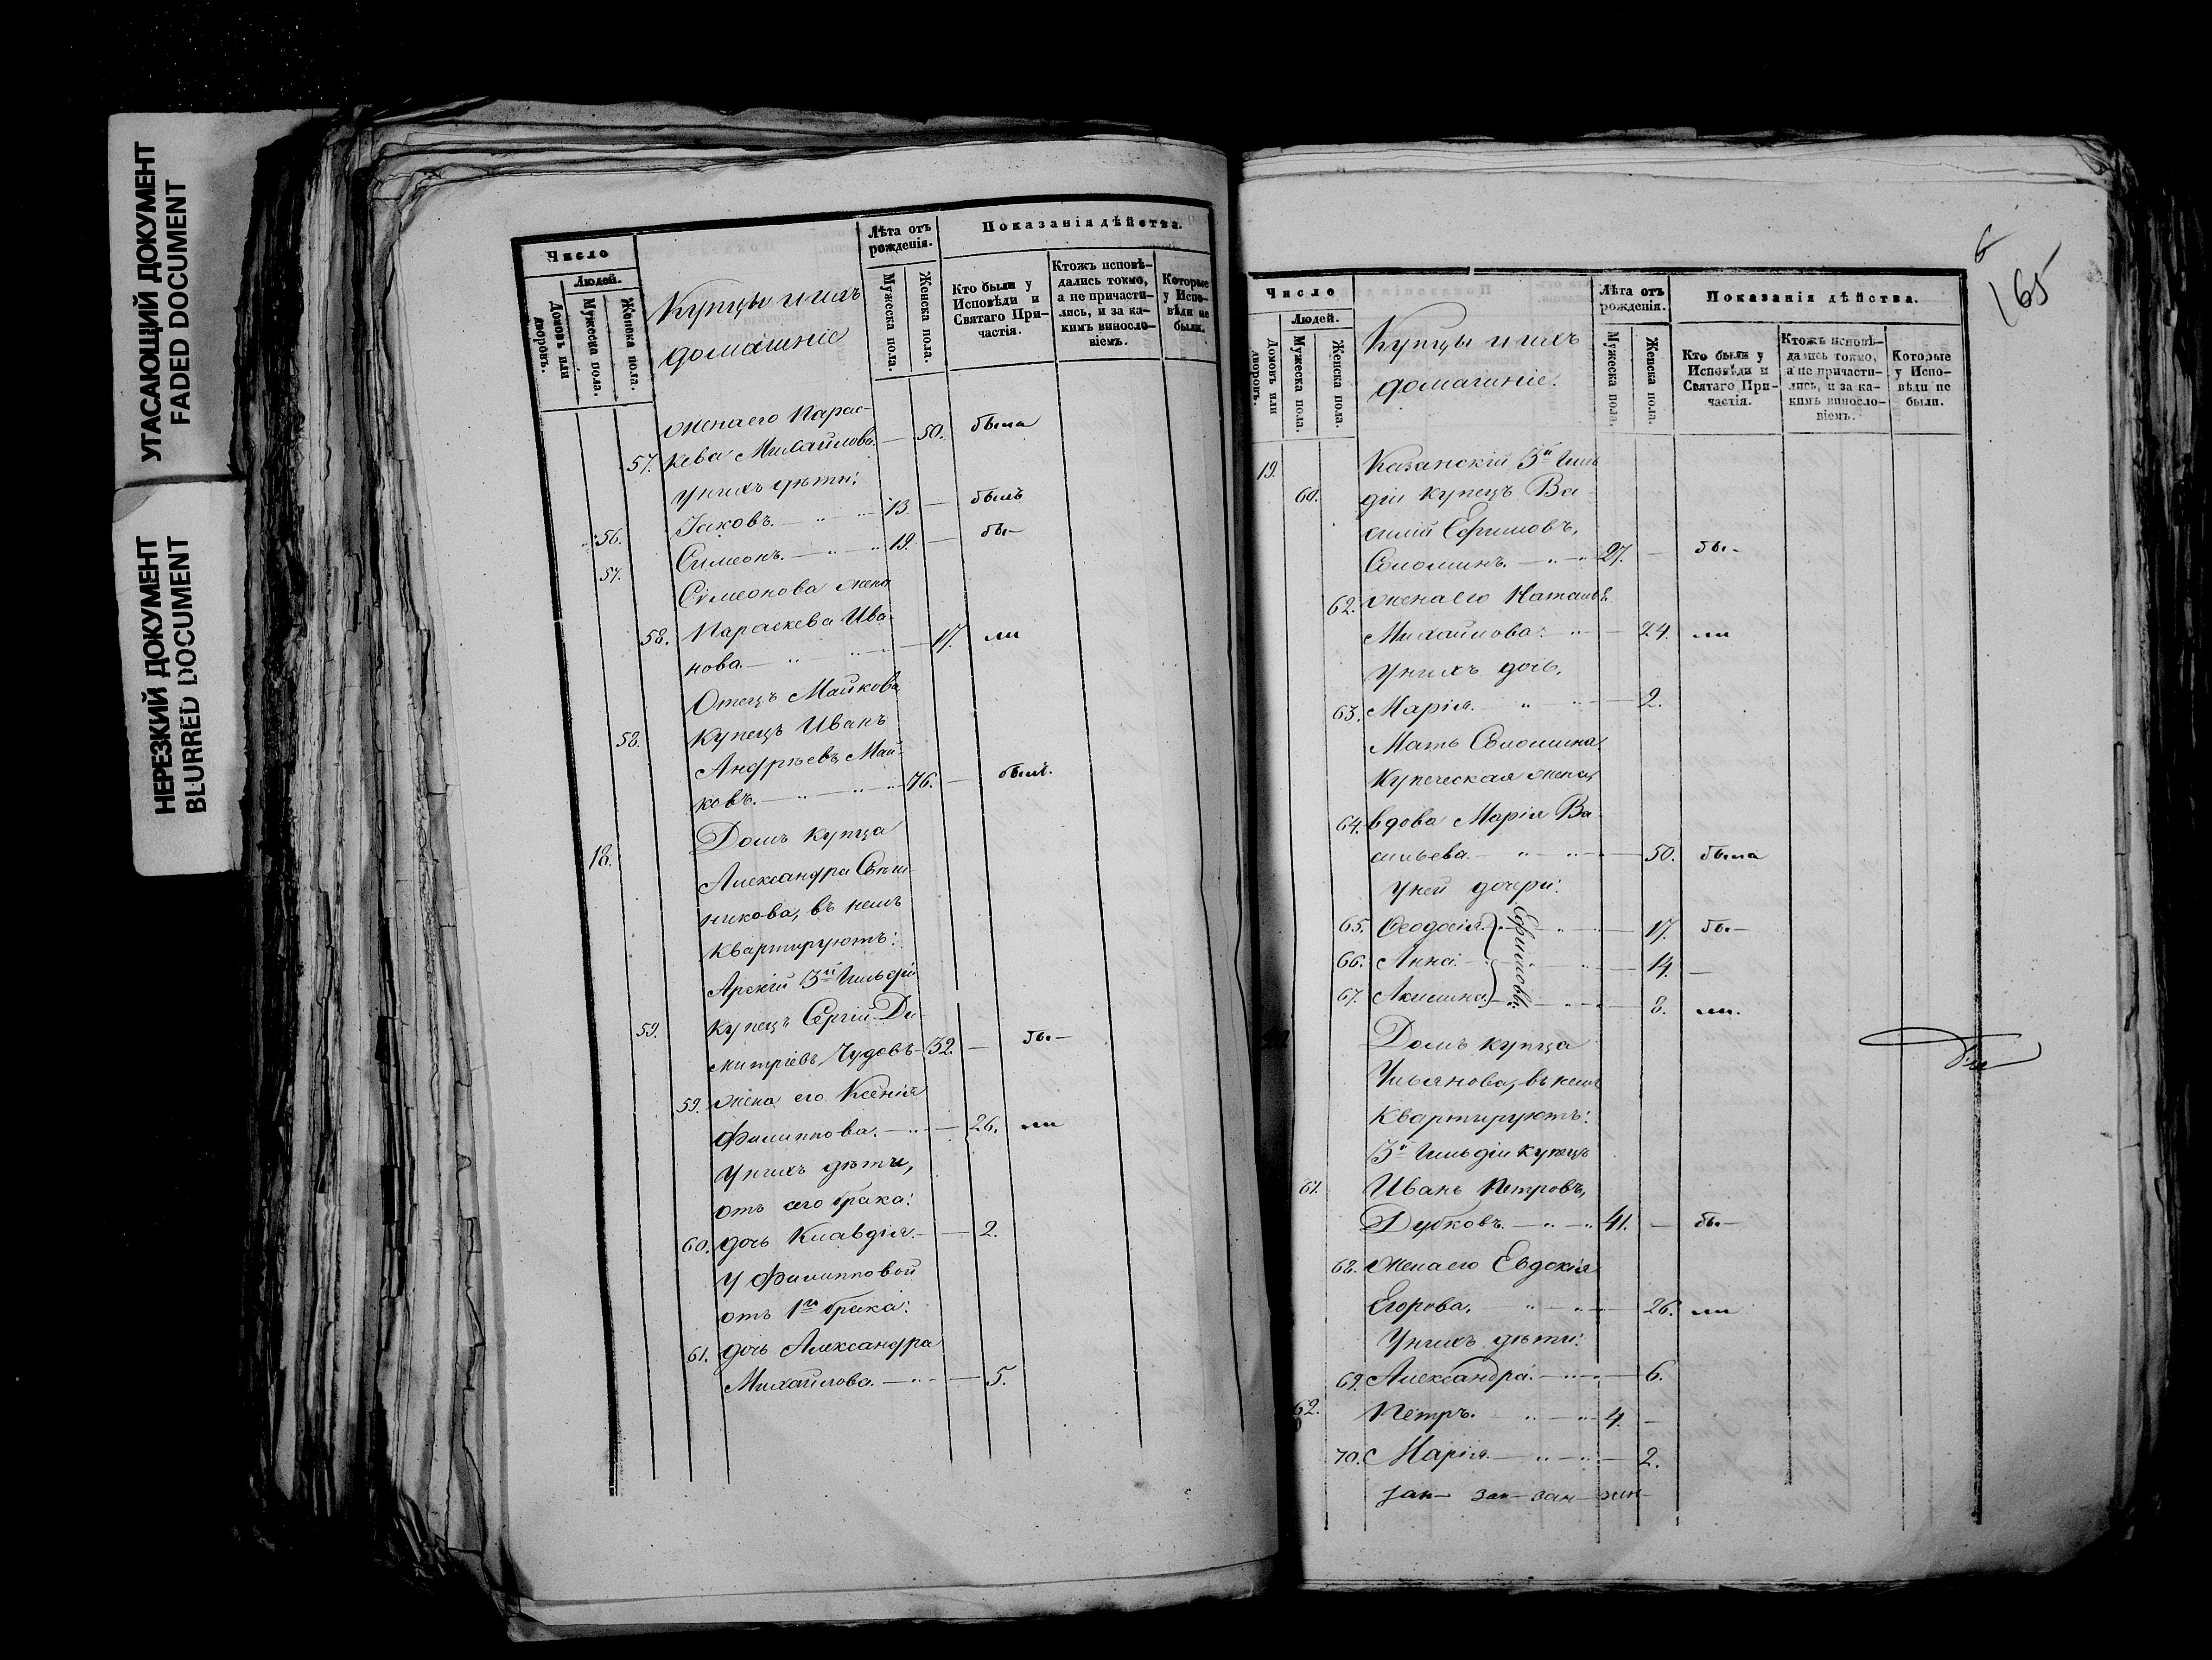 УГАСАЮЩИЙ ДОКУМЕНТ
FADED DOCUMENT
НЕРЕЗКИЙ ДОКУМЕНТ
BLURRED DOCUMENT
Число
Людей.
Домовъ или дворовъ.
Мужеска пола.
Женска пола.
Купцы и ихъ
домашніе
Лѣта отъ рожденія.
Мужеска пола.
Женска пола.
Показанія дѣйства.
Кто были у Исповѣди и Святаго Причастія.
Ктожъ исповѣдались токмо, а не причастились, и за какимъ винословіемъ.
Которые у Исповѣди не были.
жена его Парас-
57. кева Михайлова. — 50. была
У нихъ дѣти:
56. Іаковъ. — 13. — былъ
57. Симеонъ. — 19. — бы—
Симеонова жена
58. Параскева Ива-
нова. — 17. ли
Отецъ Майкова
58. купецъ Иванъ
Андрѣевъ Май-
ковъ. — 76. — былъ.
18. Домъ купца
Александра
никова, въ немъ
квартируютъ:
Арскій 3й Гильдіи
59. купецъ Сергій Ди-
митріевъ Чудовъ — 32. — бы—
59. жена его Ксенія
Филиппова. — 26. ли
У нихъ дѣти,
отъ сего брака:
60. дочь Клавдія. — 2.
У Филипповой
отъ 1го брака:
61. дочь Александра
Михайлова. — 5.
6
165
Число
Людей.
Домовъ или дворовъ.
Мужеска пола.
Женска пола.
Купцы и ихъ
домашніе.
Лѣта отъ рожденія.
Мужеска пола.
Женска пола.
Показанія дѣйства.
Кто были у Исповѣди и Святаго Причастія.
Ктожъ исповѣдались токмо, а не причастились, и за какимъ винословіемъ.
Которые у Исповѣди не были.
19. Казанскій 3й Гиль
60. діи купецъ Ва-
силій Ефимовъ,
Соломинъ. — 27. — бы—
62. жена его Наталья
Михайлова. — 24. ли
У нихъ дочь,
63. Марія. — 2.
Мать Соломина
Купеческая жена,
64. вдова Марія Ва-
сильева. — 50. была
У ней дочери:
65. Ѳеодосія — 17. бы—
66. Анна. — 14. —
67. Акилина — 8. ли.
Ефимовы
Домъ купца
Ульянова, въ немъ
квартируютъ:
3й Гильдіи купецъ
61. Иванъ Петровъ,
Дубковъ. — 41. — бы—
68. жена его Евдокія
Егорова. — 26. ли
У нихъ дѣти:
69. Александра. — 6.
62. Петръ. — 4. —
70. Марія. — 2.